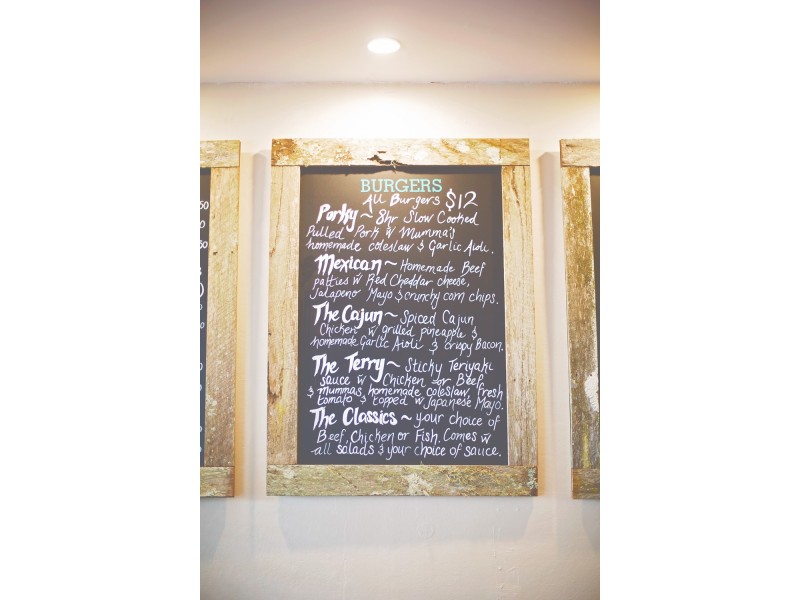 BURGERS
All Burgers $12
Porky ~ 8hr Slow Cooked
Pulled Pork w Mumma's
homemade coleslaw & Garlic Aioli.
Mexican ~ Homemade Beef
patties w Red Cheddar cheese,
Jalapeno Mayo & crunchy corn chips.
The Cajun ~ Spiced Cajun
Chicken w grilled pineapple &
homemade Garlic Aioli & crispy Bacon.
The Terry ~ Sticky Teriyaki
sauce w Chicken or Beef
& mummas homemade coleslaw, fresh
tomato & topped w Japanese Mayo.
The Classics ~ your choice of
Beef, Chicken or Fish. Comes w
all salads & your choice of sauce.